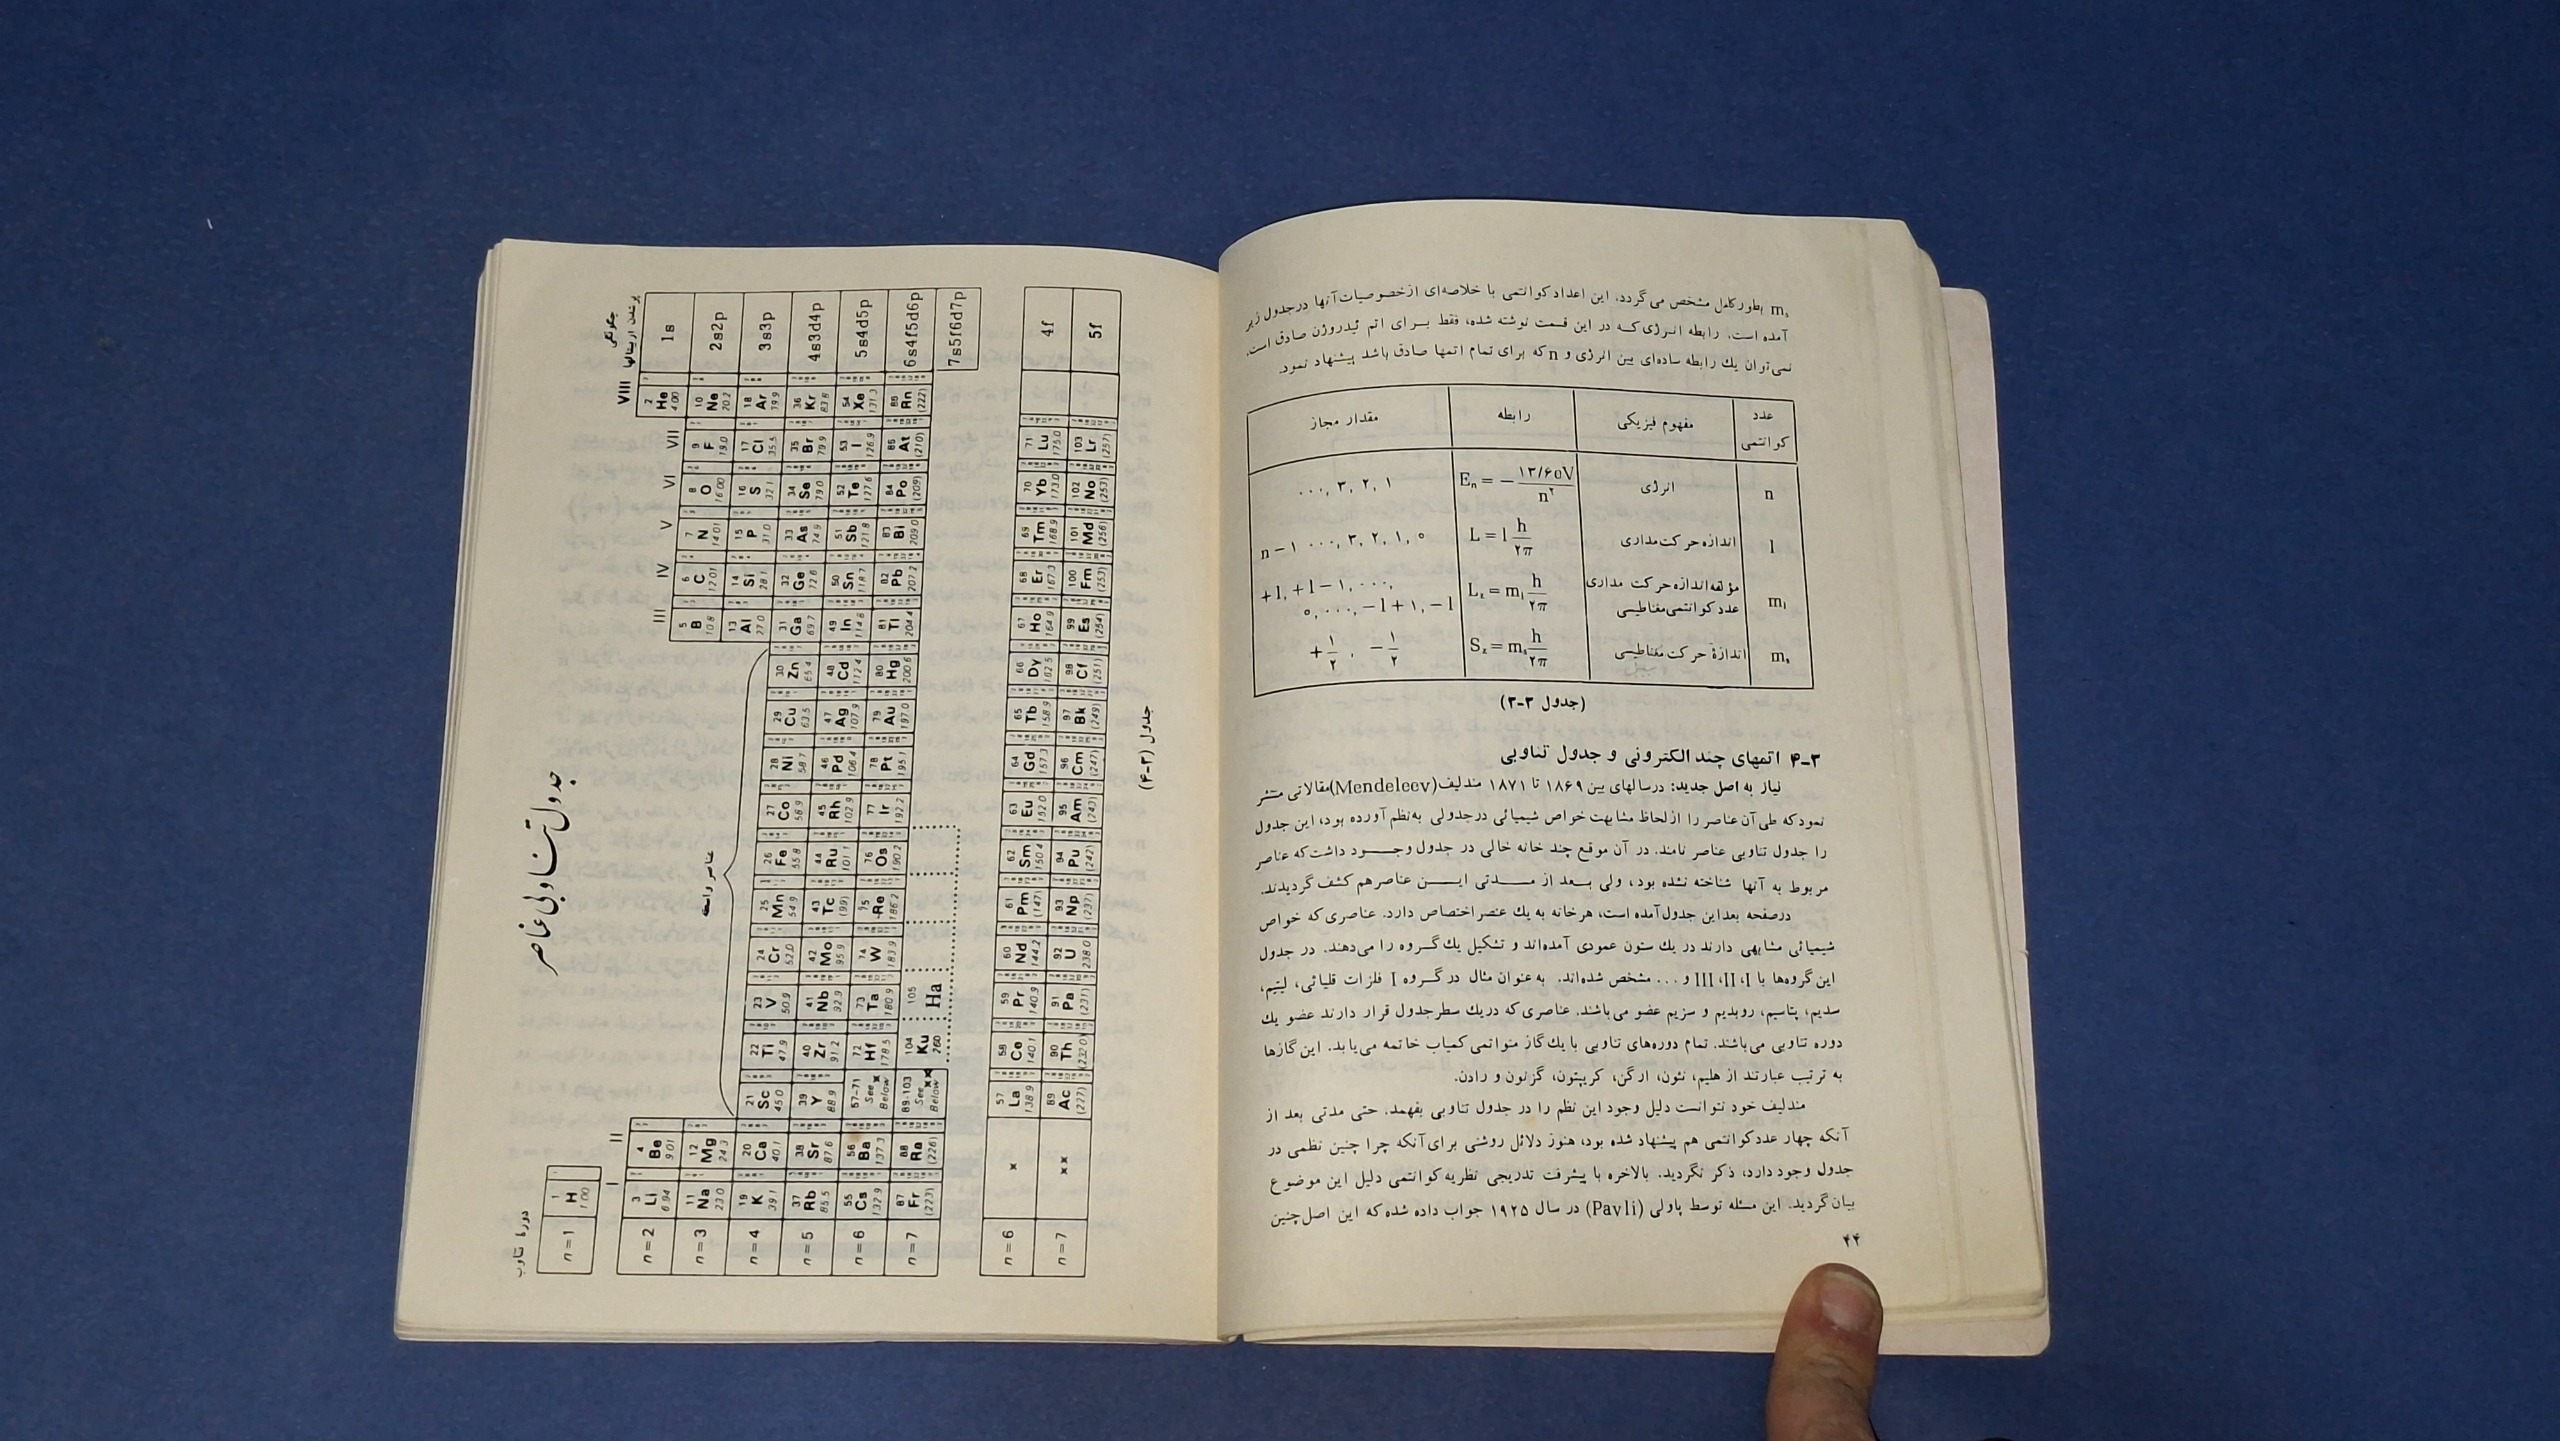 mₛ بطور کامل مشخص می‌گردد. این اعداد کوانتمی با خلاصه‌ای از خصوصیات آنها در جدول زیر
آمده است. رابطه انرژی که در این قسمت نوشته شده، فقط برای اتم ئیدروژن صادق است.
نمی‌توان یك رابطه ساده‌ای بین انرژی و n که برای تمام اتمها صادق باشد پیشنهاد نمود.
عدد کوانتمی | مفهوم فیزیکی | رابطه | مقدار مجاز
n | انرژی | Eₙ = − ۱۳/۶eV / n² | ۱, ۲, ۳, ...
l | اندازه حرکت مداری | L = l h/۲π | ۰, ۱, ۲, ۳, ... n−۱
mₗ | مؤلفه اندازه حرکت مداری عدد کوانتمی مغناطیسی | L_z = mₗ h/۲π | +l, +l−۱, ..., ۰, ..., −l+۱, −l
mₛ | اندازهٔ حرکت مغناطیسی | S_z = mₛ h/۲π | +۱/۲ , −۱/۲
(جدول ۳-۳)
۴-۳ اتمهای چند الکترونی و جدول تناوبی
نیاز به اصل جدید: در سالهای بین ۱۸۶۹ تا ۱۸۷۱ مندلیف (Mendeleev) مقالاتی منتشر
نمود که طی آن عناصر را از لحاظ مشابهت خواص شیمیائی در جدولی به نظم آورده بود، این جدول
را جدول تناوبی عناصر نامند. در آن موقع چند خانه خالی در جدول وجود داشت که عناصر
مربوط به آنها شناخته نشده بود، ولی بعد از مدتی این عناصر هم کشف گردیدند.
در صفحه بعد این جدول آمده است، هر خانه به یك عنصر اختصاص دارد. عناصری که خواص
شیمیائی مشابهی دارند در یك ستون عمودی آمده‌اند و تشکیل یك گروه را می‌دهند. در جدول
این گروه‌ها با I، II، III و ... مشخص شده‌اند. به عنوان مثال در گروه I فلزات قلیائی، لیتیم،
سدیم، پتاسیم، روبدیم و سزیم عضو می‌باشند. عناصری که در یك سطر جدول قرار دارند عضو یك
دوره تناوبی می‌باشند. تمام دوره‌های تناوبی با یك گاز منواتمی کمیاب خاتمه می‌یابد. این گازها
به ترتیب عبارتند از هلیم، نئون، ارگن، کریپتون، گزنون و رادن.
مندلیف خود نتوانست دلیل وجود این نظم را در جدول تناوبی بفهمد. حتی مدتی بعد از
آنکه چهار عدد کوانتمی هم پیشنهاد شده بود، هنوز دلائل روشنی برای آنکه چرا چنین نظمی در
جدول وجود دارد، ذکر نگردید. بالاخره با پیشرفت تدریجی نظریه کوانتمی دلیل این موضوع
بیان گردید. این مسئله توسط پاولی (Pavli) در سال ۱۹۲۵ جواب داده شده که این اصل چنین
۴۴
جدول تناوبی عناصر
دورهٔ تناوب
چگونگی پرشدن اربیتالها
I II III IV V VI VII VIII
عناصر واسطه
n=1 | 1 H 1.00 | 2 He 4.00 | 1s
n=2 | 3 Li 6.94 | 4 Be 9.01 | 5 B 10.8 | 6 C 12.01 | 7 N 14.01 | 8 O 16.00 | 9 F 19.0 | 10 Ne 20.2 | 2s2p
n=3 | 11 Na 23.0 | 12 Mg 24.3 | 13 Al 27.0 | 14 Si 28.1 | 15 P 31.0 | 16 S 32.1 | 17 Cl 35.5 | 18 Ar 39.9 | 3s3p
n=4 | 19 K 39.1 | 20 Ca 40.1 | 21 Sc 45.0 | 22 Ti 47.9 | 23 V 50.9 | 24 Cr 52.0 | 25 Mn 54.9 | 26 Fe 55.8 | 27 Co 58.9 | 28 Ni 58.7 | 29 Cu 63.5 | 30 Zn 65.4 | 31 Ga 69.7 | 32 Ge 72.6 | 33 As 74.9 | 34 Se 79.0 | 35 Br 79.9 | 36 Kr 83.8 | 4s3d4p
n=5 | 37 Rb 85.5 | 38 Sr 87.6 | 39 Y 88.9 | 40 Zr 91.2 | 41 Nb 92.9 | 42 Mo 95.9 | 43 Tc (99) | 44 Ru 101.1 | 45 Rh 102.9 | 46 Pd 106.4 | 47 Ag 107.9 | 48 Cd 112.4 | 49 In 114.8 | 50 Sn 118.7 | 51 Sb 121.8 | 52 Te 127.6 | 53 I 126.9 | 54 Xe 131.3 | 5s4d5p
n=6 | 55 Cs 132.9 | 56 Ba 137.3 | 57-71 See Below * | 72 Hf 178.5 | 73 Ta 180.9 | 74 W 183.9 | 75 Re 186.2 | 76 Os 190.2 | 77 Ir 192.2 | 78 Pt 195.1 | 79 Au 197.0 | 80 Hg 200.6 | 81 Tl 204.4 | 82 Pb 207.2 | 83 Bi 209.0 | 84 Po (209) | 85 At (210) | 86 Rn (222) | 6s4f5d6p
n=7 | 87 Fr (223) | 88 Ra (226) | 89-103 See Below ** | 104 Ku 260 | 105 Ha | 7s5f6d7p
n=6 | * | 57 La 138.9 | 58 Ce 140.1 | 59 Pr 140.9 | 60 Nd 144.2 | 61 Pm (147) | 62 Sm 150.4 | 63 Eu 152.0 | 64 Gd 157.3 | 65 Tb 158.9 | 66 Dy 162.5 | 67 Ho 164.9 | 68 Er 167.3 | 69 Tm 168.9 | 70 Yb 173.0 | 71 Lu 175.0 | 4f
n=7 | ** | 89 Ac (227) | 90 Th (232.0) | 91 Pa (231) | 92 U 238.0 | 93 Np (237) | 94 Pu (242) | 95 Am (243) | 96 Cm (247) | 97 Bk (249) | 98 Cf (251) | 99 Es (254) | 100 Fm (253) | 101 Md (256) | 102 No (253) | 103 Lr (257) | 5f
جدول (۴-۳)